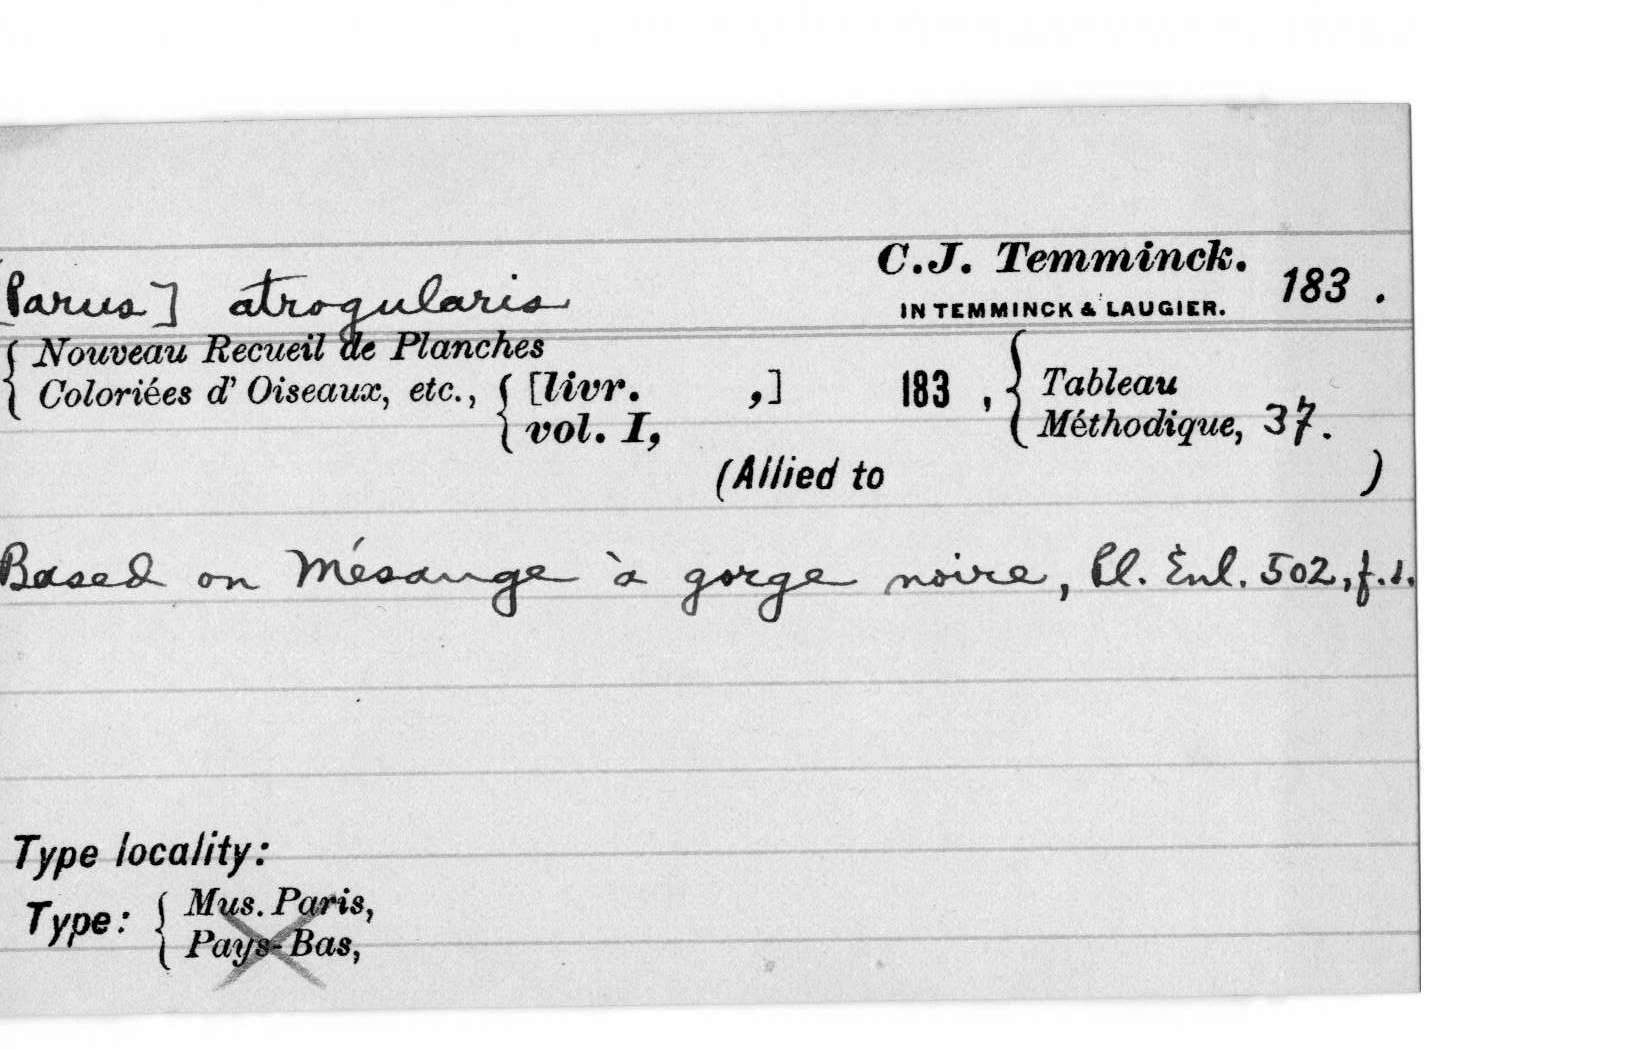 [Parus] atrogularis C.J. Temminck. 183 .
IN TEMMINCK & LAUGIER.
{ Nouveau Recueil de Planches
Coloriées d' Oiseaux, etc., { [livr. ,] 183 , { Tableau
vol. I, Méthodique, 37.
(Allied to )
Based on Mésange à gorge noire, Pl. Enl. 502, f.1.
Type locality:
Type: { Mus. Paris,
Pays-Bas,